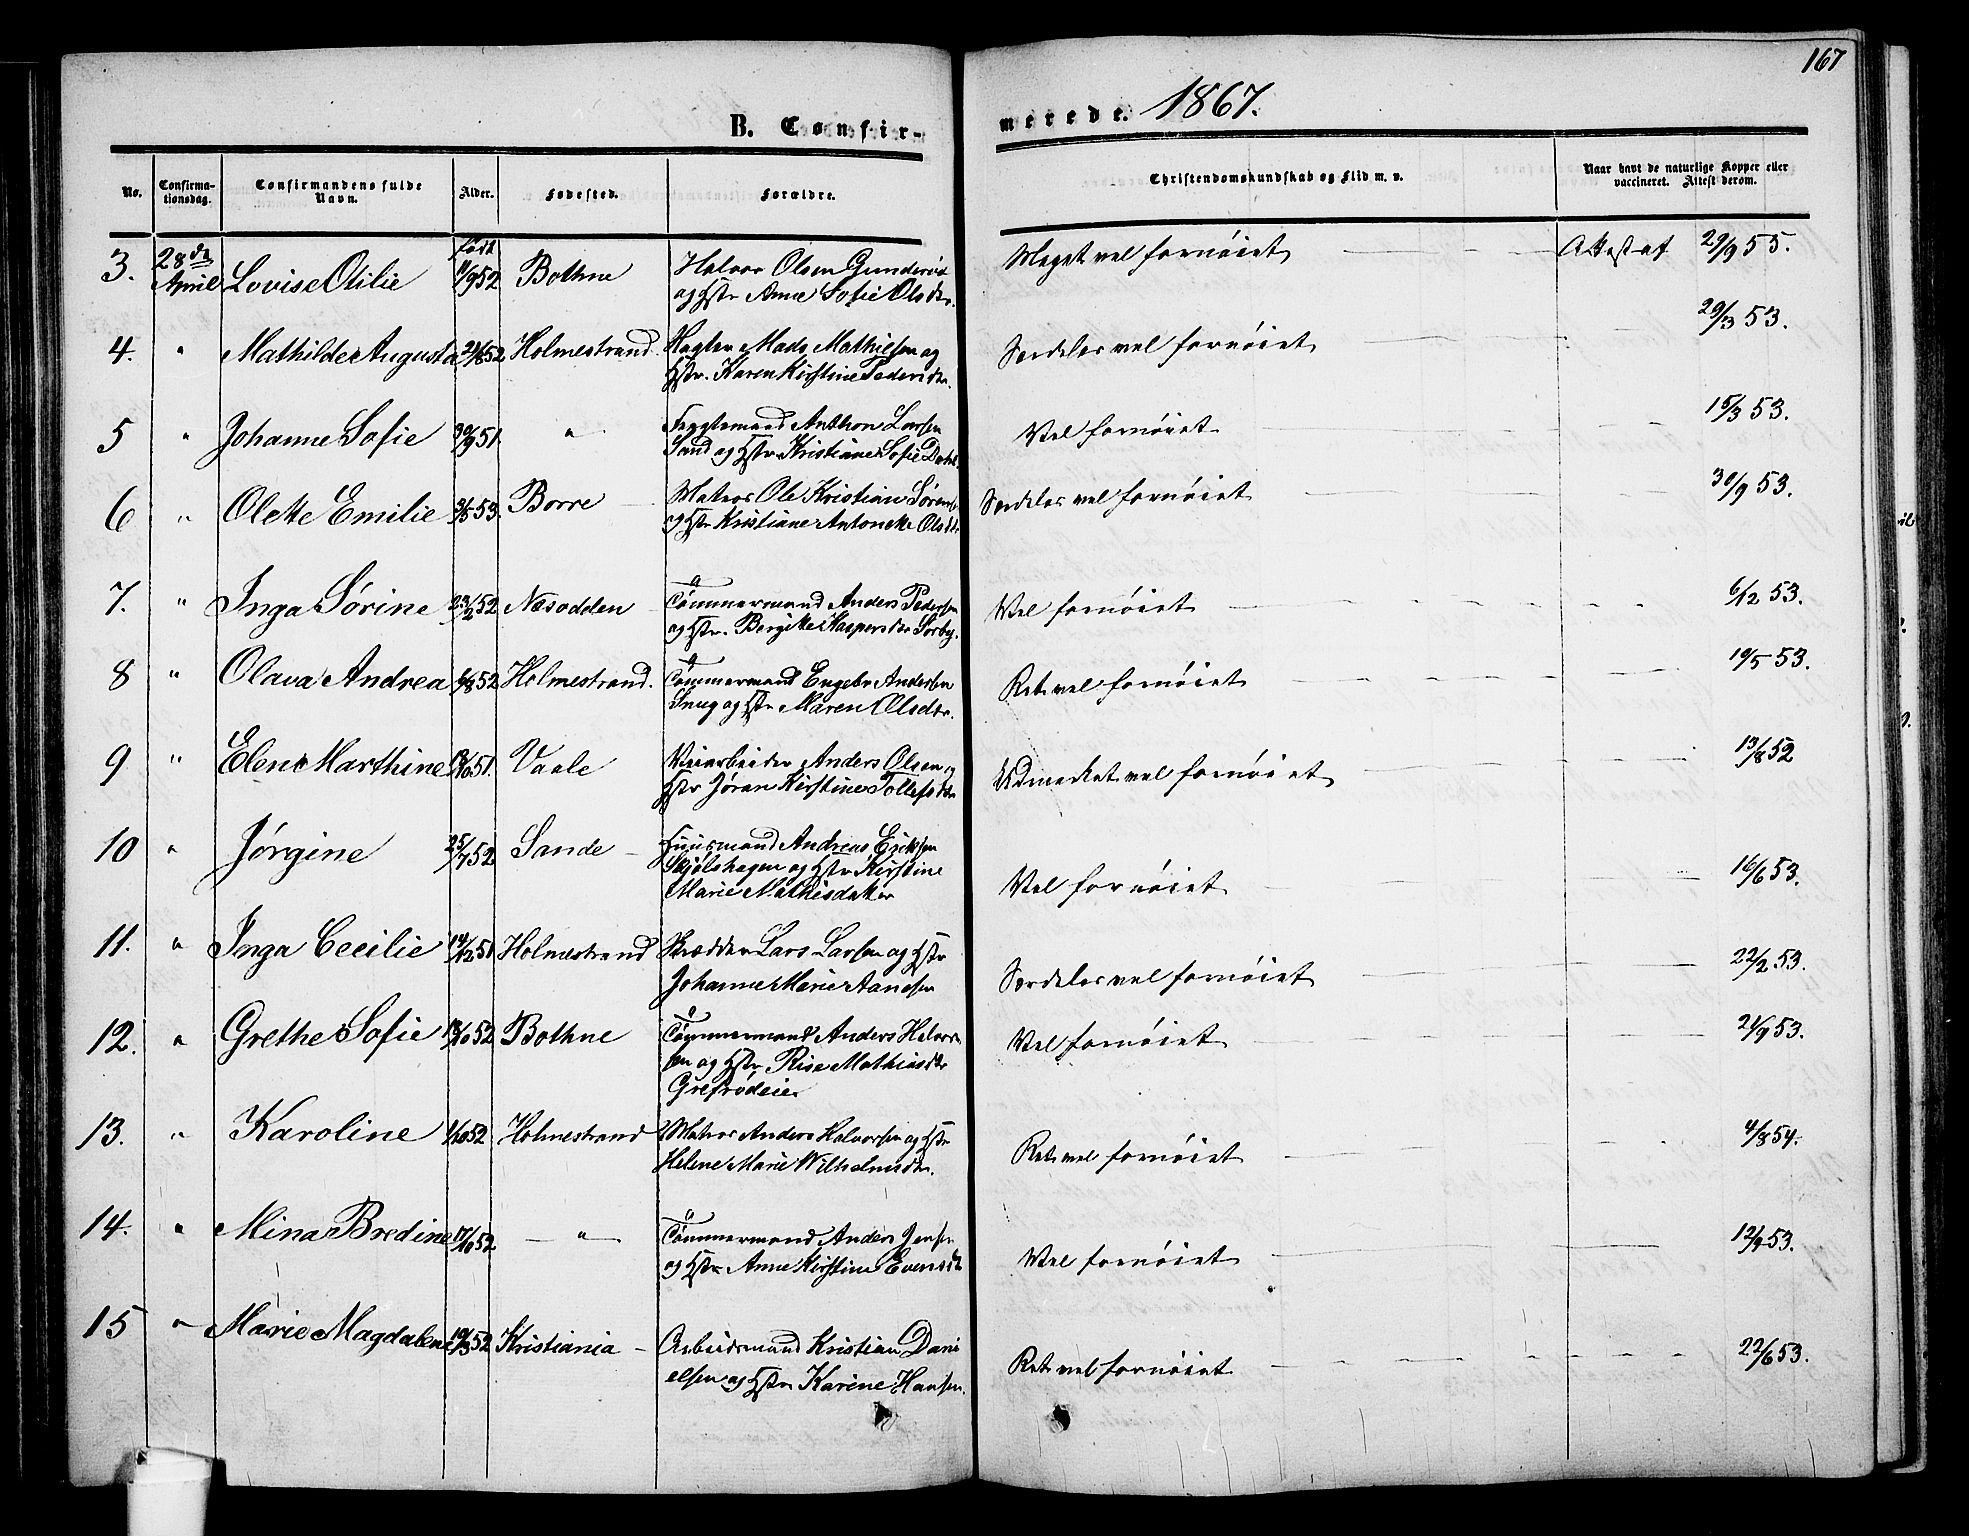 167
B. Confir-
merede. 1867.
No.
Confirma-
tionsdag.
Confirmandens fulde
Navn.
Alder.
Fødested.
Forældre.
Christendomskundskab og Flid m. v.
Naar havt de naturlige Kopper eller
vaccineret. Attest derom.
3. 28de April Lovise Otilie født 11/9 52 Bothne Halvor Olsen Gunderød
og Hstr Anne Sofie Olsdtr. Meget vel fornøiet Attest af 29/9 55.
4. " Mathilde Augusta 21/8 52 Holmestrand. Mads Mathisen og
Hstr. Karen Kirstine Pedersdtr. Særdeles vel fornøiet 29/3 53.
5 " Johanne Sofie 30/9 51. " Anthon Larsen
Sand og Hstr Kristiane Sofie Dahl. Vel fornøiet 15/3 53.
6 " Olette Emilie 3/5 53. Borre Matros Ole Kristian Sørens
og Hstr Kristiane Antonette Olsdtr Særdeles vel fornøiet 30/9 53.
7. " Inga Sørine 23/2 52 Næsodden Tømmermand Anders Pedersen
og Hstr. Bergitte Kaspersdtr Sørby. Vel fornøiet 6/12 53.
8 " Olava Andrea 6/8 52 Holmestrand. Tømmermand Engebr Andersen
Snug og Hstr Maren Olsdtr. Ret vel fornøiet 19/5 53.
9 " Elene Marthine 19/10 51. Vaale Veiarbeider Anders Olsen og
Hstr Jøran Kirstine Tollefsdtr Udmerket vel fornøiet 13/8 52
10 " Jørgine 25/7 52 Sande Huusmand Andreas Eriksen
Skjølshagen og Hstr Kirstine
Marie Mathisdatter Vel fornøiet 16/6 53.
11. " Inga Cecilie 14/12 51 Holmestrand Skrædder Lars Larsen og Hstr
Johanne Marie Særdeles vel fornøiet 22/2 53.
12. " Grethe Sofie 13/10 52 Bothne Tømmermand Anders Halvor-
sen og Hstr Rise Mathiasdtr
Grefrødeie. Vel fornøiet 21/9 53.
13. " Karoline 1/10 52 Holmestrand Matros Anders Halvorsen og Hstr
Helene Marie Wilhelmsdtr. Ret vel fornøiet 4/8 54.
14. " Mina Bredine 17/10 52 " Tømmermand Anders Jensen
og Hstr Anne Kirstine Evensdtr Vel fornøiet 12/9 53.
15 " Marie Magdalene 19/3 52 Kristiania Arbeidsmand Kristian Dani
elsen og Hstr Karine Hansen. Ret vel fornøiet 22/6 53.